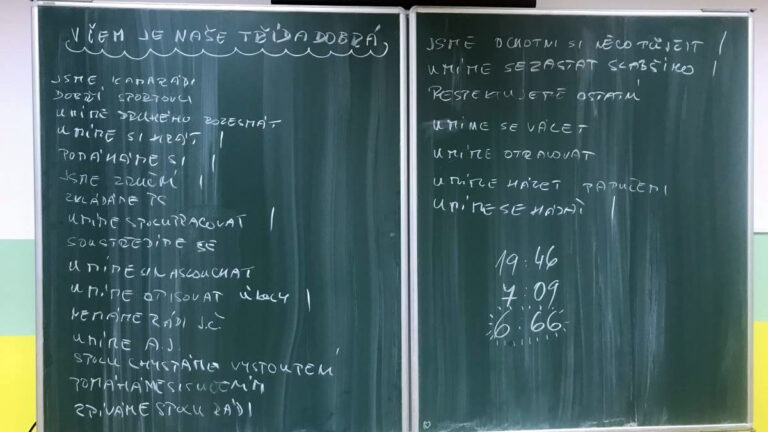 V ČEM JE NAŠE TŘÍDA DOBRÁ
JSME KAMARÁDI
DOBŘÍ SPORTOVCI
UMÍME DRUHÉHO ROZESMÁT
UMÍME SI HRÁT |
POMÁHÁME SI |
JSME ZRUČNÍ |
ZVLÁDÁME
UMÍME SPOLUPRACOVAT |
SOUSTŘEDÍME SE
UMÍME
UMÍME OPISOVAT ÚKOLY |
NEMÁME RÁDI J.Č
UMÍME A.J.
SPOLU CHYSTÁME VYSTOUPENÍ
POMÁHÁME SI S UČENÍM
ZPÍVÁME SPOLU RÁDI
JSME OCHOTNI SI NĚCO PŮJČIT |
UMÍME SE ZASTAT SLABŠÍHO |
RESPEKTUJEME OSTATNÍ
UMÍME SE VÁLET
UMÍME OTRAVOVAT
UMÍME HÁZET PAPUČEMI
UMÍME SE HÁDAT |
19:46
7:09
6:66